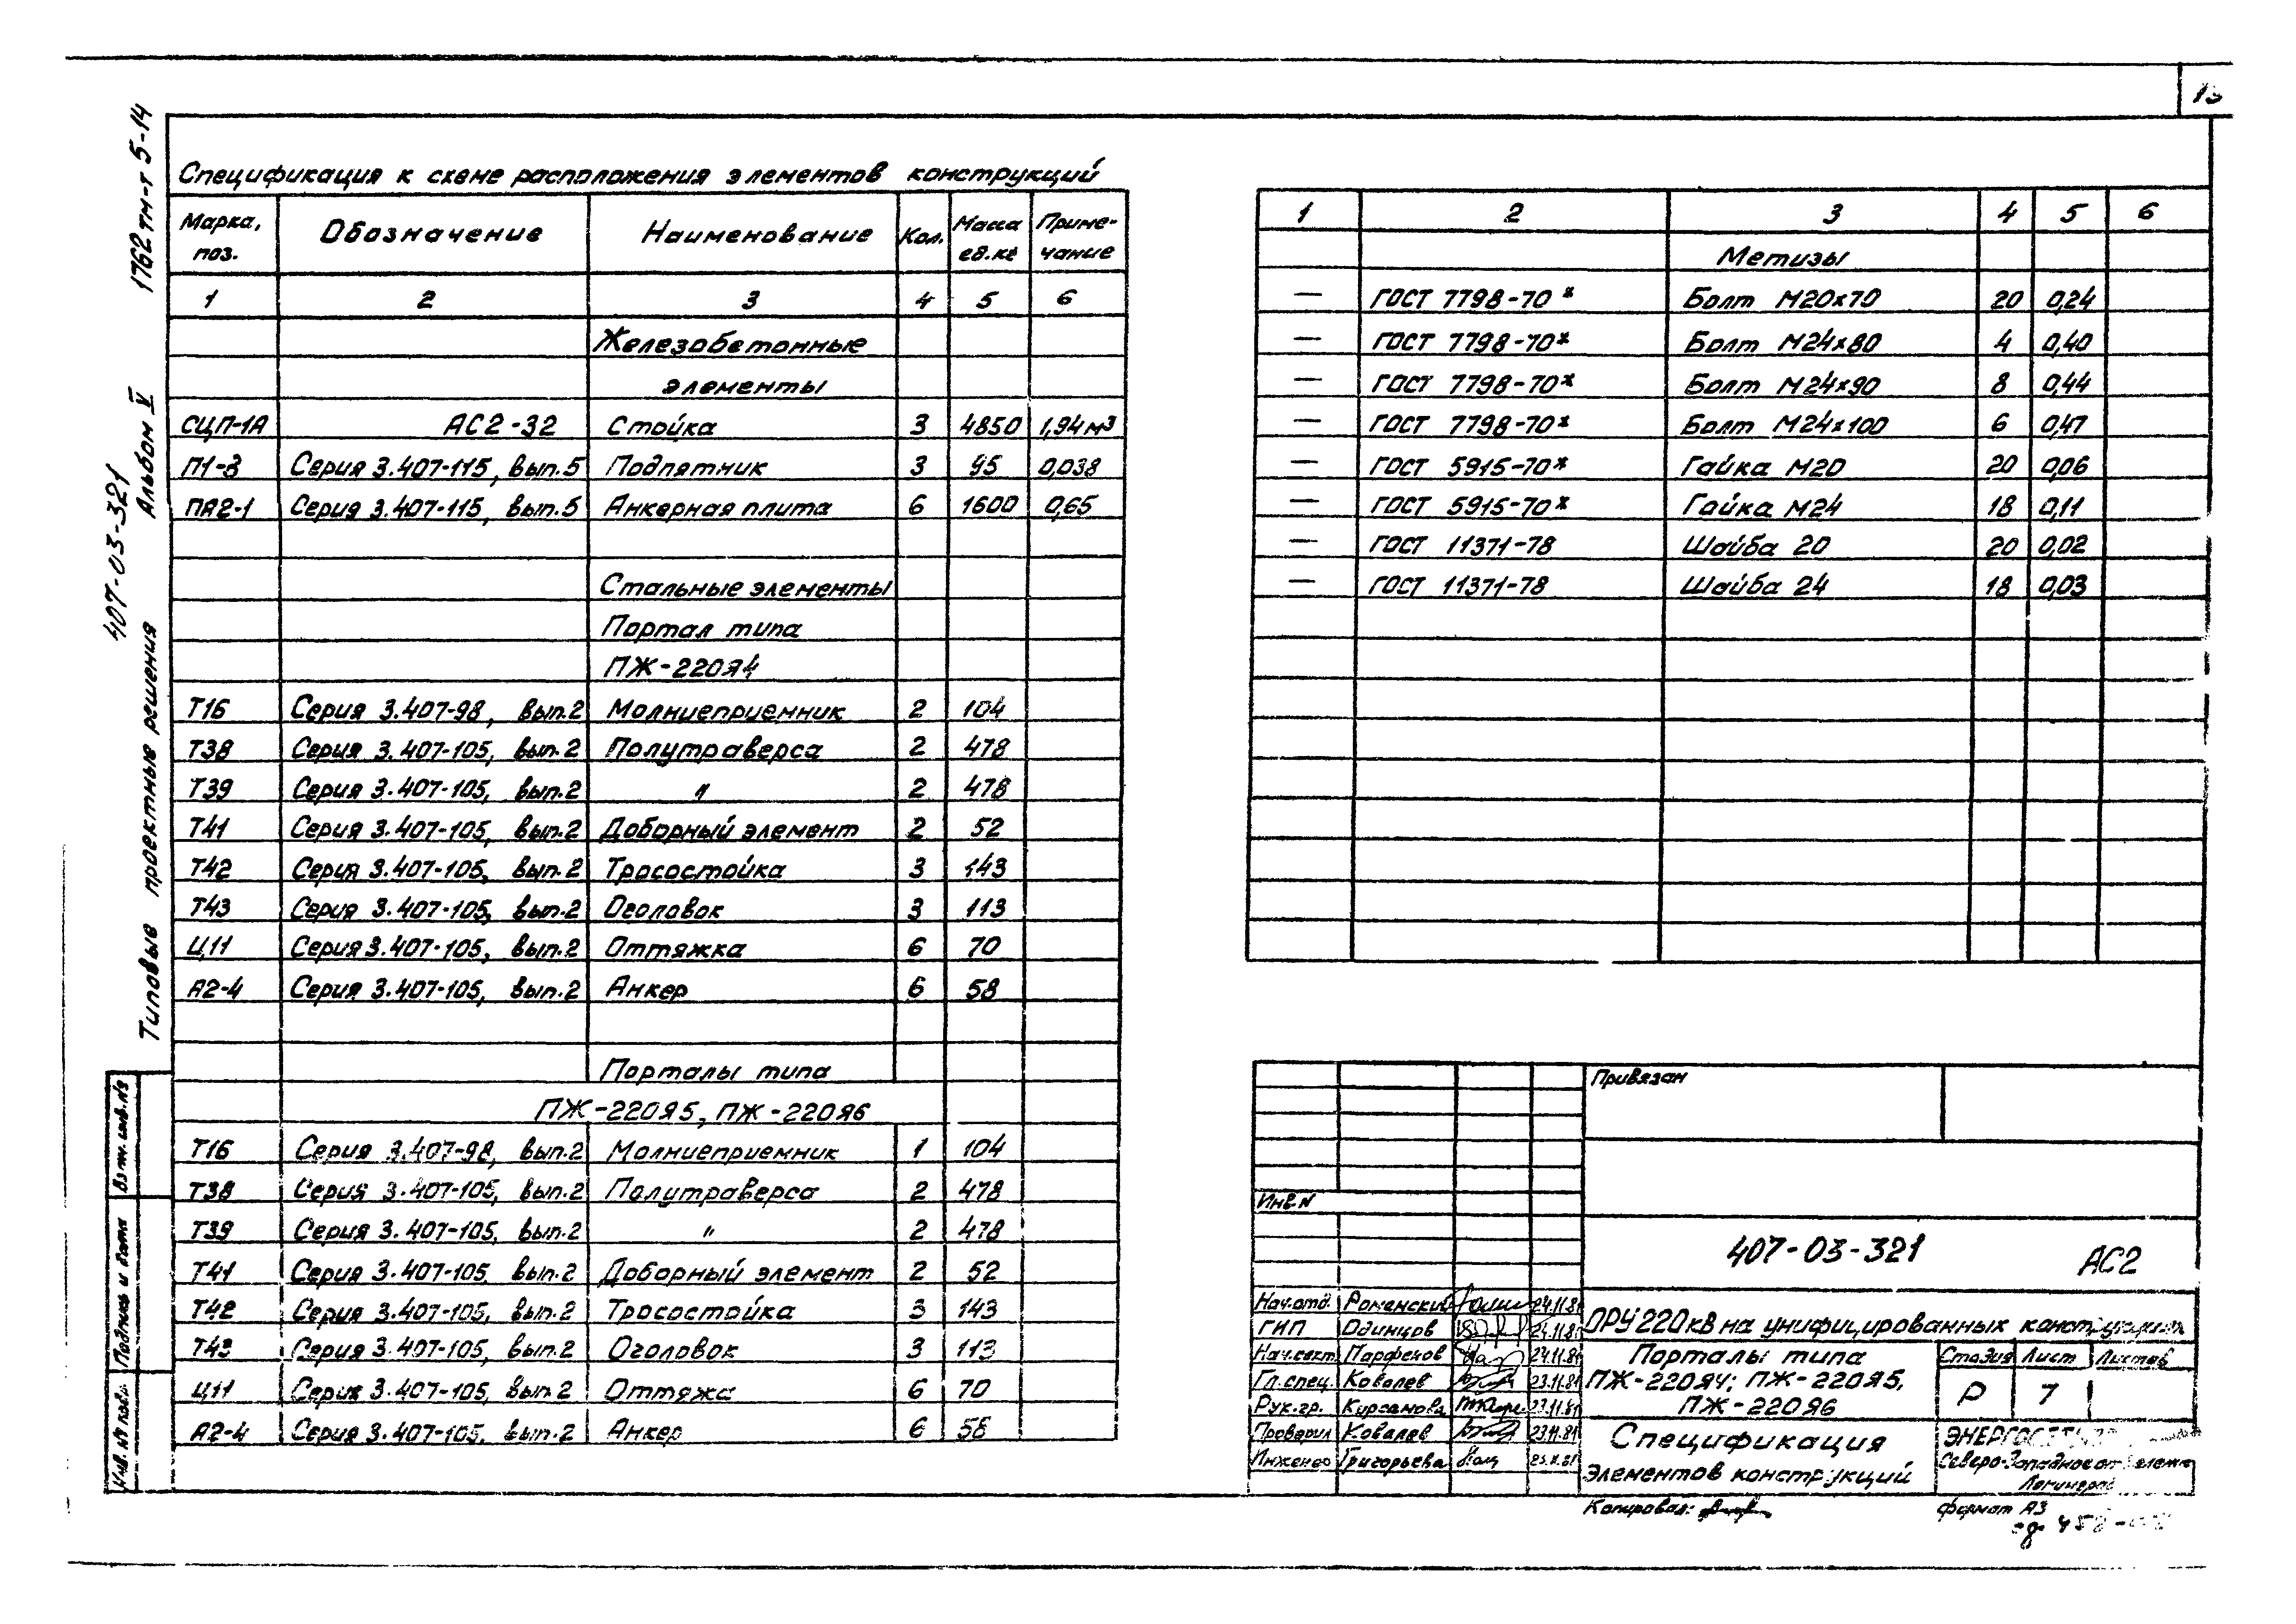 1762тм-т 5-14
407-03-321
Альбом V
Типовые проектные решения
Спецификация к схеме расположения элементов конструкций
Марка, поз. Обозначение Наименование Кол. Масса ед.кг Примечание
1 2 3 4 5 6
Железобетонные
элементы
СЦП-1А АС2-32 Стойка 3 4850 1,94м³
П1-3 Серия 3.407-115, вып.5 Подпятник 3 95 0,038
ПА2-1 Серия 3.407-115, вып.5 Анкерная плита 6 1600 0,65
Стальные элементы
Портал типа
ПЖ-220Я4
Т16 Серия 3.407-98, вып.2 Молниеприемник 2 104
Т38 Серия 3.407-105, вып.2 Полутраверса 2 478
Т39 Серия 3.407-105, вып.2 " 2 478
Т41 Серия 3.407-105, вып.2 Доборный элемент 2 52
Т42 Серия 3.407-105, вып.2 Тросостойка 3 143
Т43 Серия 3.407-105, вып.2 Оголовок 3 113
Ц11 Серия 3.407-105, вып.2 Оттяжка 6 70
А2-4 Серия 3.407-105, вып.2 Анкер 6 58
Порталы типа
ПЖ-220Я5, ПЖ-220Я6
Т16 Серия 3.407-98, вып.2 Молниеприемник 1 104
Т38 Серия 3.407-105, вып.2 Полутраверса 2 478
Т39 Серия 3.407-105, вып.2 " 2 478
Т41 Серия 3.407-105, вып.2 Доборный элемент 2 52
Т42 Серия 3.407-105, вып.2 Тросостойка 3 143
Т43 Серия 3.407-105, вып.2 Оголовок 3 113
Ц11 Серия 3.407-105, вып.2 Оттяжа 6 70
А2-4 Серия 3.407-105, вып.2 Анкер 6 58
1 2 3 4 5 6
Метизы
— ГОСТ 7798-70* Болт М20х70 20 0,24
— ГОСТ 7798-70* Болт М24х80 4 0,40
— ГОСТ 7798-70* Болт М24х90 8 0,44
— ГОСТ 7798-70* Болт М24х100 6 0,47
— ГОСТ 5915-70* Гайка М20 20 0,06
— ГОСТ 5915-70* Гайка М24 18 0,11
— ГОСТ 11371-78 Шайба 20 20 0,02
— ГОСТ 11371-78 Шайба 24 18 0,03
Привязан
Инв.N
407-03-321 АС2
Нач.отд. Роменский 24.11.81
ГИП Одинцов 24.11.81
Нач.сект. Парфенов 24.11.81
Гл.спец. Ковалев 23.11.81
Рук.гр. Кирсанова 23.11.81
Проверил Ковалев 23.11.81
Инженер Григорьева
ОРУ 220кВ на унифицированных конструкциях
Порталы типа
ПЖ-220Я4; ПЖ-220Я5,
ПЖ-220Я6
Стадия Лист Листов
Р 7
Спецификация
элементов конструкций
Северо-Западное
Ленинград
Копировал:
формат А3
Взам. инв.№
Подпись и дата
Инв. № подл.